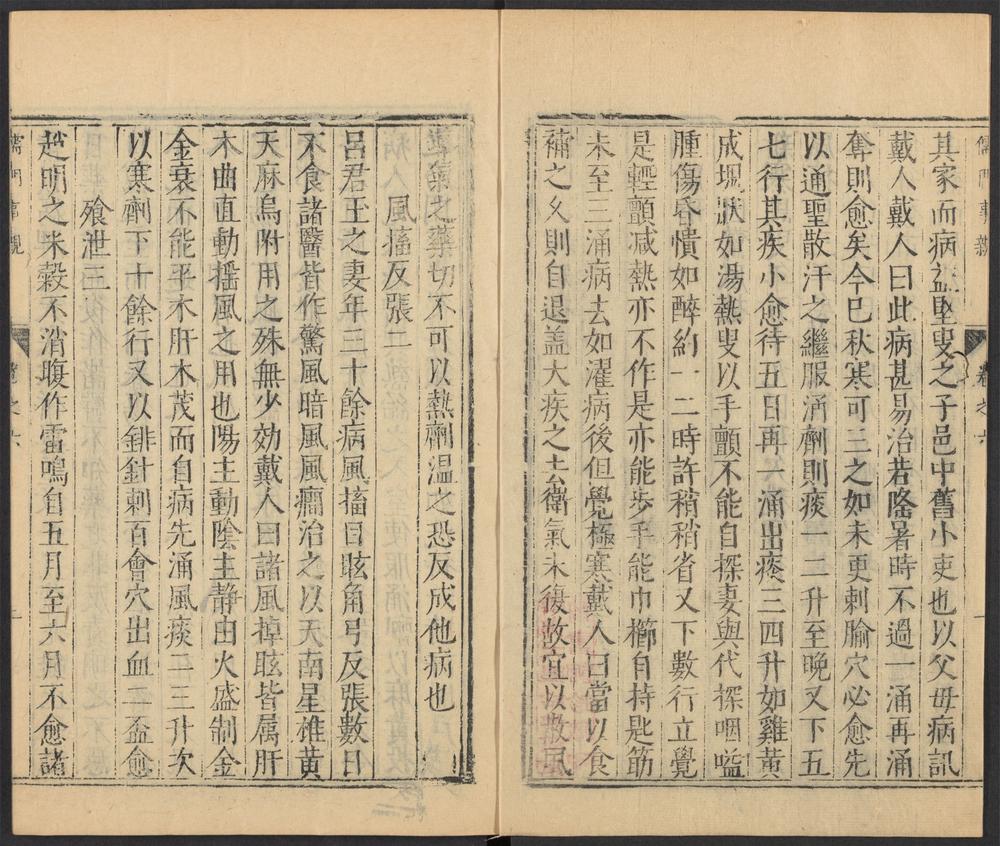 儒門事親
卷之六
一
其家而病益堅叟之子邑中舊小吏也以父母病訊
戴人戴人曰此病甚易治若隆暑時不過一涌再涌
奪則愈矣今已秋寒可三之如未更刺腧穴必愈先
以通聖散汗之繼服涌劑則痰一二升至晚又下五
七行其疾小愈待五日再一涌出痰三四升如雞黃
成塊狀如湯熱叟以手顫不能自探妻與代探咽嗌
腫傷昏憒如醉約一二時許稍稍省又下數行立覺
足輕顫減熱亦不作足亦能步手能巾櫛自持匙筯
未至三涌病去如濯病後但覺極寒戴人曰當以食
補之久則自退盖大疾之去衛氣未復故宜以散風
導氣之藥切不可以熱劑溫之恐反成他病也
風搐反張二
呂君玉之妻年三十餘病風搐目眩角弓反張數日
不食諸醫皆作驚風暗風風癎治之以天南星雄黃
天麻烏附用之殊無少効戴人曰諸風掉眩皆属肝
木曲直動搖風之用也陽主動陰主静由火盛制金
金衰不能平木肝木茂而自病先涌風痰二三升次
以寒劑下十餘行又以䤵針刺百會穴出血二盃愈
飧泄三
趙明之米穀不消腹作雷鳴自五月至六月不愈諸
儒門事親
卷之六